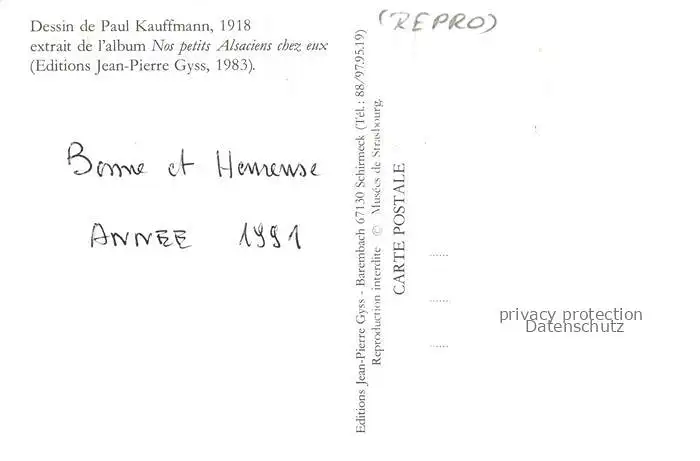 Dessin de Paul Kauffmann, 1918
extrait de l'album Nos petits Alsaciens chez eux
(Editions Jean-Pierre Gyss, 1983).
(REPRO)
Bonne et Heureuse
ANNEE 1991
Editions Jean-Pierre Gyss - Barembach 67130 Schirmeck (Tél.: 88/97.95.19)
Reproduction interdite © Musées de Strasbourg.
CARTE POSTALE
privacy protection
Datenschutz